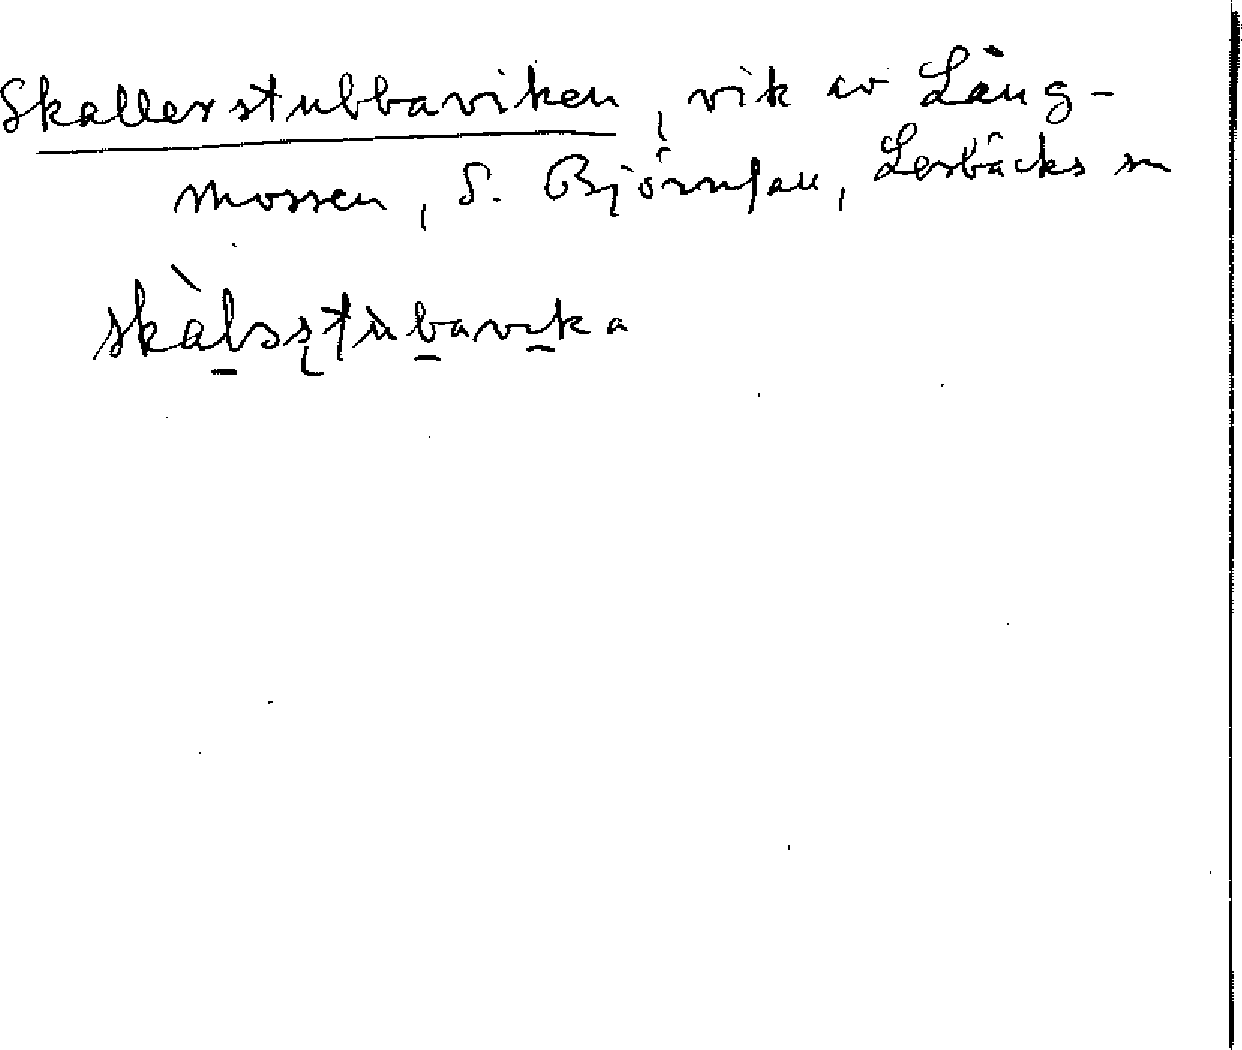 Skallerstubbaviken, vik av Lång-
mossen, S. Björnfall, Lerbäcks sn
skàlsstùbavika